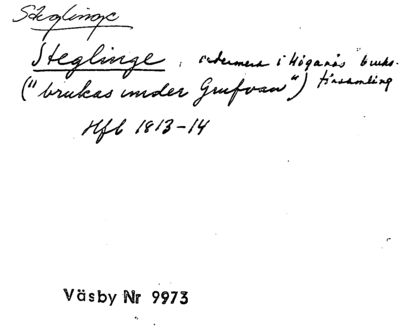 Steglinge
Steglinge, sedermera i Höganäs bruks-
("brukas under Grufvan") församling
Hfl 1813-14
Väsby Nr 9973